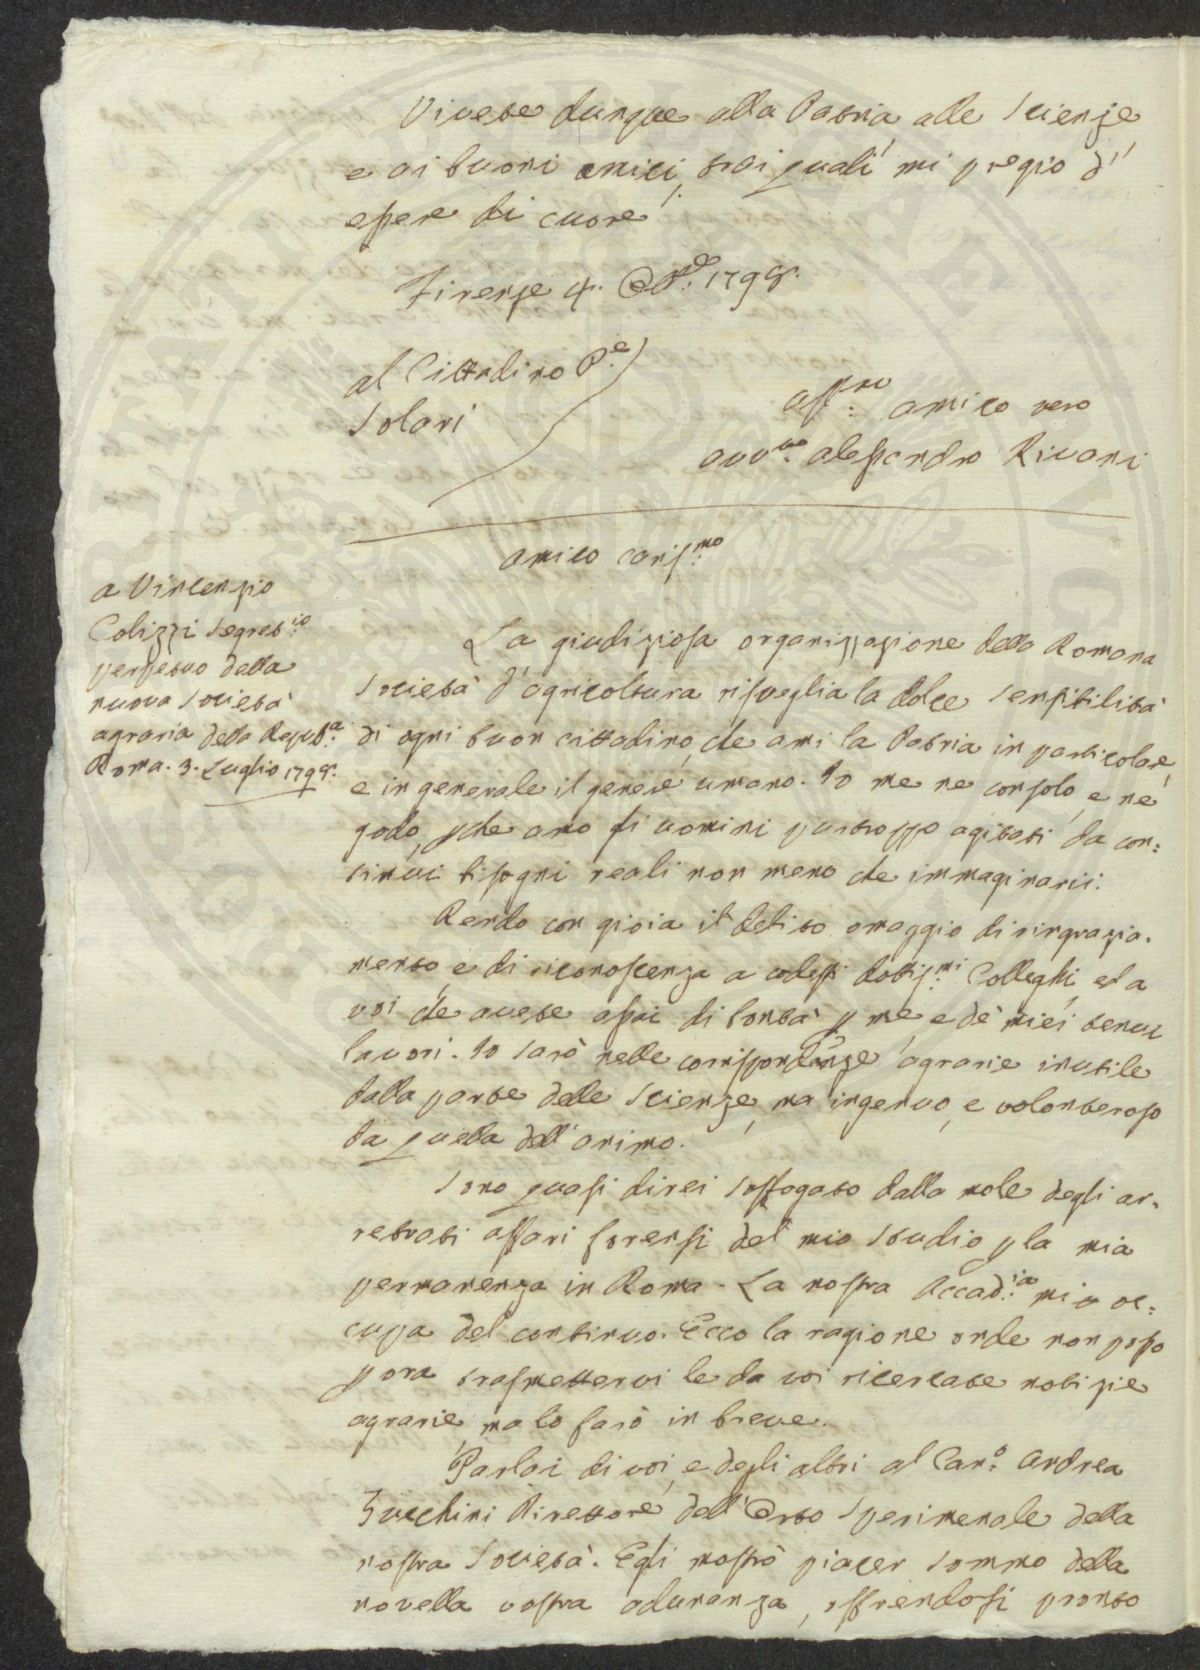 Vivete dunque alla Patria, alle Scienze
e ai buoni amici, trai quali mi pregio d'
essere di cuore
Firenze 4. Ott.e 1798.
al Cittadino P.e
Solari
aff.mo amico vero
avv.to Alessandro Rivani
Amico caris.mo
a Vincenzio
Colizzi Segret.io
perpetuo della
nuova Società
agraria della Repub.a
Roma. 3. Luglio 1798.
La giudiziosa organizzazione della Romana
Società d'agricoltura risveglia la dolce sensibilità
di ogni buon cittadino, che ami la Patria in particolare,
e in generale il genere umano. Io me ne consolo, e ne
godo, pche amo gli uomini purtroppo agitati da con=
tinui bisogni reali non meno che immaginarii.
Rendo con gioia il debito omaggio di ringrazia.
mento, e di riconoscenza a codesti dottis.mi Colleghi, ed a
voi che avete assai di bontà p me, e de' miei tenui
lavori. Io sarò nelle corrispondenze agrarie inutile
dalla parte delle Scienze, ma ingenuo, e volonteroso
da quella dell'animo.
Sono quasi direi soffogato dalla mole degli ar.
retrati affari forensi del mio Studio p la mia
permanenza in Roma. La nostra Accad.ia mi oc=
cupa del continuo. Ecco la ragione onde non posso
p ora trasmettervi le da voi ricercate notizie
agrarie, ma lo farò in breve.
Parlai di voi, e degli altri al Can.o Andrea
Zucchini Direttore dell'Orto Sperimenale della
nostra Società. Egli mostrò piacer sommo della
novella vostra adunanza, offrendosi pronto